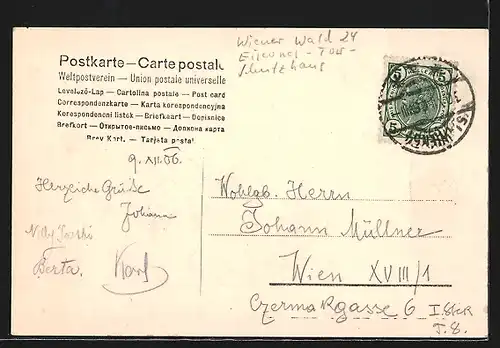 Wiener Wald 24
Eisernes-Tor-
Schutzhaus
Postkarte — Carte postale
Weltpostverein — Union postale universelle
Levelező-Lap — Cartolina postale — Post card
Correspondenzkarte — Karta korespondencyjna
Korespondenční lístek — Briefkaart — Dopisnice
Brefkort — Открытое-письмо — Дописна карта
Brev Kort. — Tarjeta postal
9. XII. 06.
Herzliche Grüße
Johann
Berta. Karl
5 5
Wohlgb. Herrn
Johann Müllner
Wien XVIII/1
Czermakgasse 6 I. Stock
T. 8.